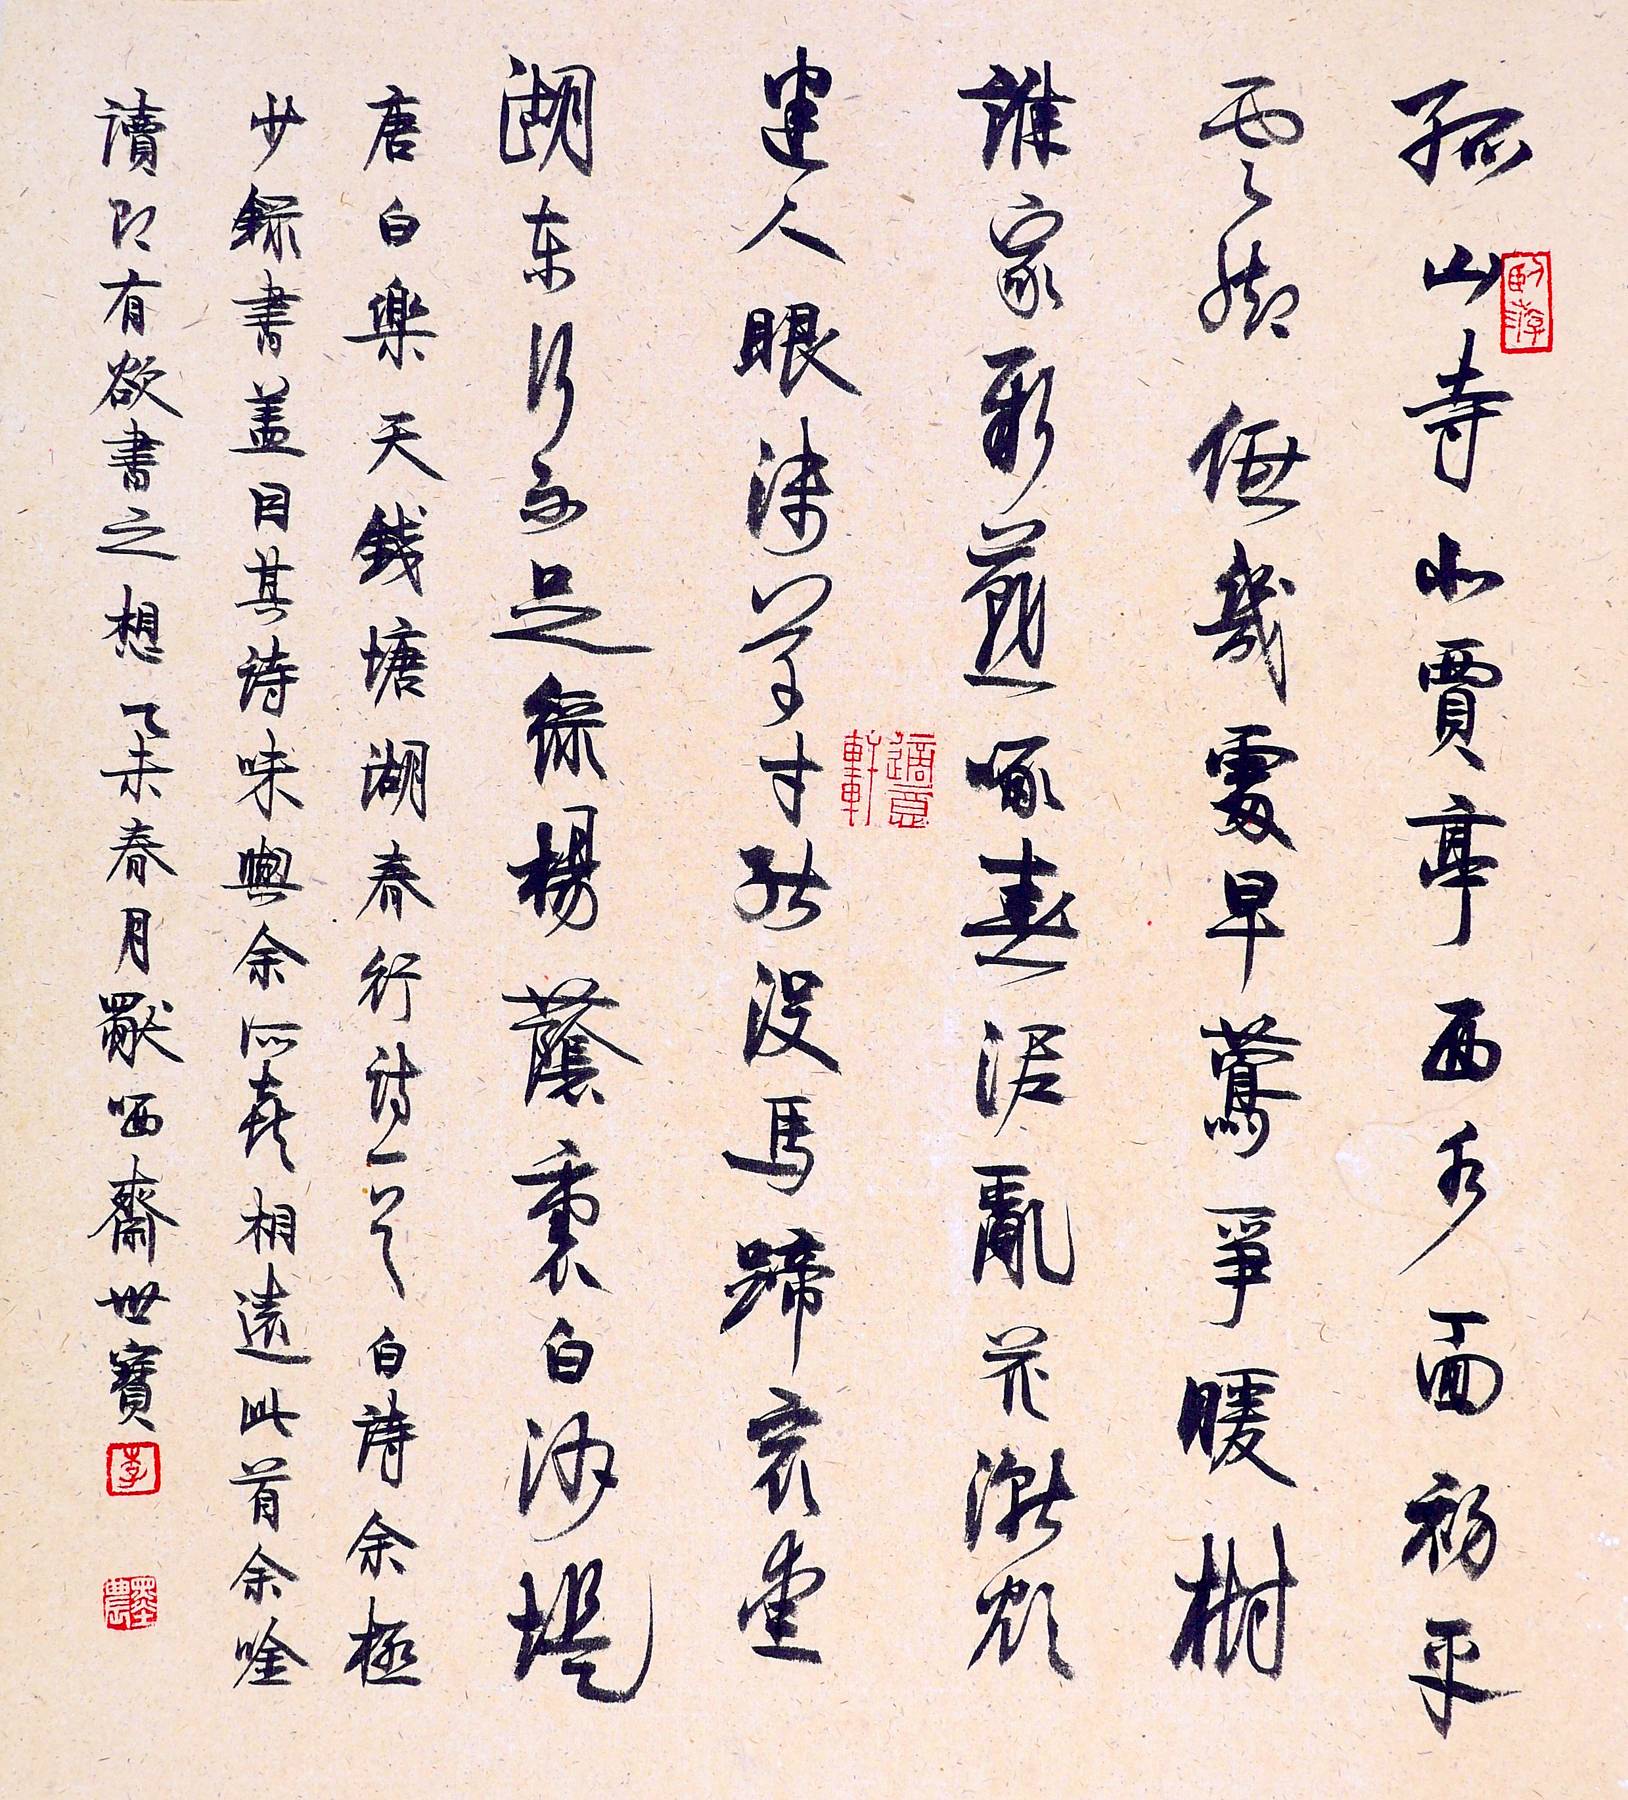 孤山寺北賈亭西水面初平
雲腳低幾處早鶯爭暖樹
誰家新燕啄春泥亂花漸欲
迷人眼淺草才能沒馬蹄最愛
湖東行不足綠楊蔭裏白沙堤
唐白樂天錢塘湖春行詩一首白詩余極
少錄書蓋因其詩味與余所喜相遠此首余唫
讀即有欲書之想乙未春月哂齋世寶
卧游
適意軒
李
墨農